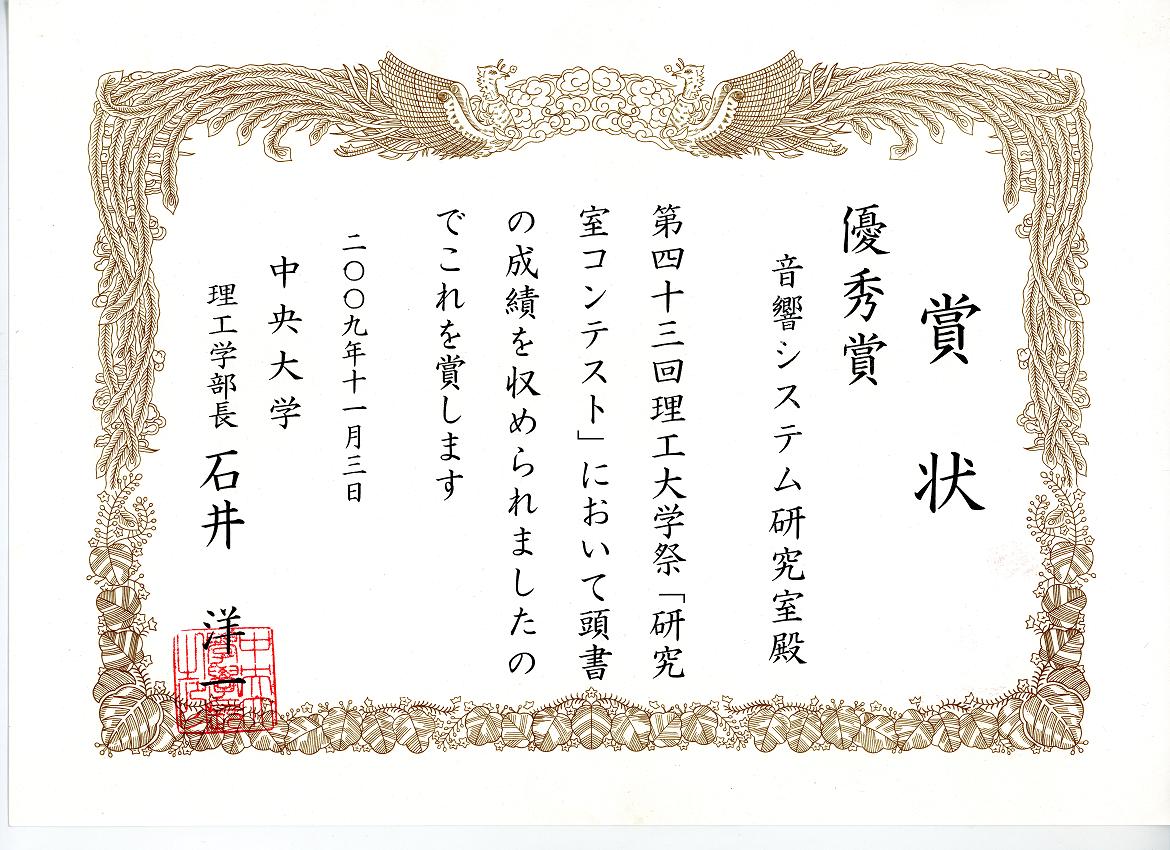 賞状
優秀賞
音響システム研究室殿
第四十三回理工大学祭「研究
室コンテスト」において頭書
の成績を収められましたの
でこれを賞します
二〇〇九年十一月三日
中央大学
理工学部長 石井 洋一